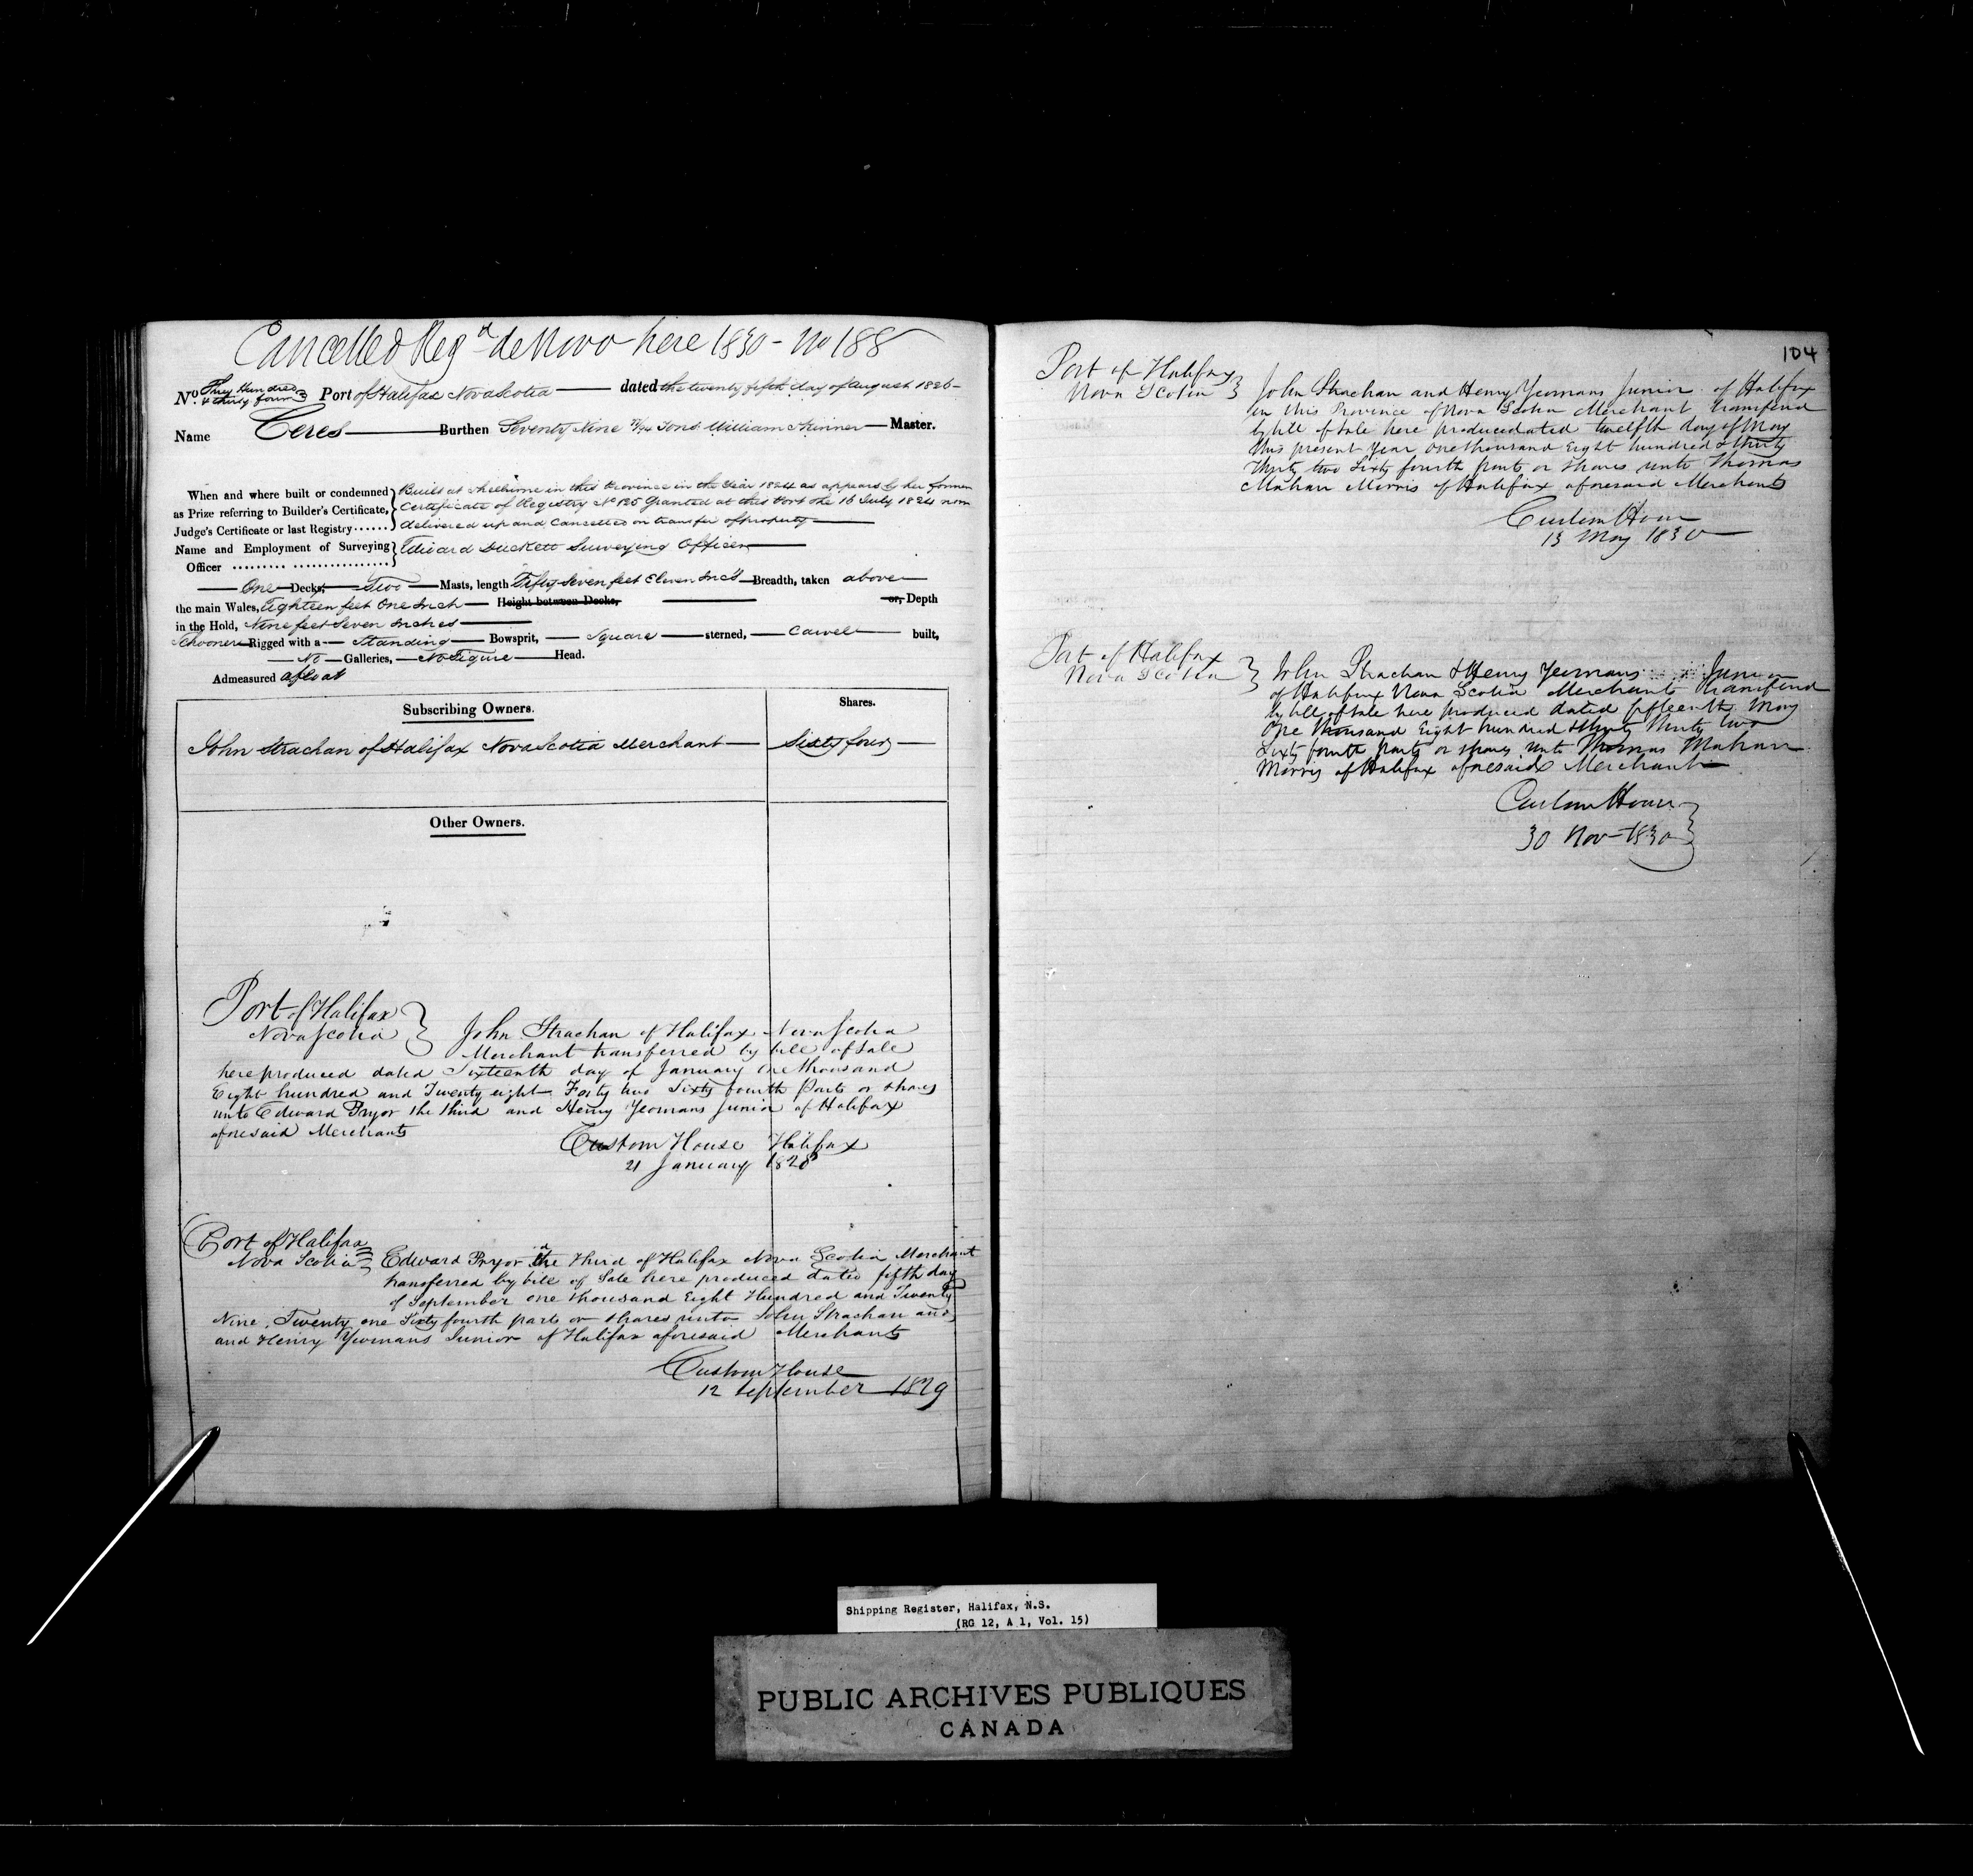 Cancelled Regd de Novo here 1830 - No 188
No. Three Hundred & thirty four Port of Halifax Nova Scotia dated the twenty fifth day of August 1826
Name Ceres Burthen Seventy Nine Tons William Skinner Master.
When and where built or condemned Built at Shelburne in this Province in the Year 1824 as appears by her former
as Prize referring to Builder's Certificate, Certificate of Registry No 125 Granted at this Port the 16 July 1824 now
Judge's Certificate or last Registry...... delivered up and Cancelled on transfer of property
Name and Employment of Surveying Edward Duckett Surveying Officer
Officer
One Decks, Two Masts, length Fifty Seven feet Eleven Inc's Breadth, taken above
the main Wales, Eighteen feet One Inch Height between Decks, or, Depth
in the Hold, Nine feet Seven Inches
Schooner Rigged with a Standing Bowsprit, Square sterned, Carvel built,
No Galleries, No Figure Head.
Admeasured afloat
Subscribing Owners. Shares.
John Strachan of Halifax Nova Scotia Merchant Sixty four
Other Owners.
Port of Halifax
Nova Scotia John Strachan of Halifax Nova Scotia
Merchant transferred by bill of Sale
here produced dated Sixteenth day of January One thousand
Eight hundred and Twenty eight Forty two Sixty fourth Parts or shares
unto Edward Pryor the third and Henry Yeomans Junior of Halifax
aforesaid Merchants
Custom House Halifax
21 January 1828
Port of Halifax
Nova Scotia Edward Pryor the Third of Halifax Nova Scotia Merchant
transferred by bill of Sale here produced dated fifth day
of September one thousand Eight Hundred and Twenty
Nine, Twenty one Sixty fourth parts or shares unto John Strachan and
and Henry Yeomans Junior of Halifax aforesaid Merchants
Custom House
12 September 1829
104
Port of Halifax
Nova Scotia John Strachan and Henry Yeomans Junior of Halifax
in this Province of Nova Scotia Merchant transferd
by bill of Sale here produced dated twelfth day of May
this present Year One thousand Eight hundred & thirty
Thirty two Sixty fourth parts or shares unto Thomas
Mahan Morris of Halifax aforesaid Merchant
Custom House
13 May 1830
Port of Halifax
Nova Scotia John Strachan & Henry Yeomans Junior
of Halifax Nova Scotia Merchants transferd
by bill of sale here produced dated fifteenth May
One thousand Eight hundred & thirty thirty two
Sixty fourth parts or shares unto Thomas Mahan
Morris of Halifax aforesaid Merchant
Custom House
30 Nov 1830
Shipping Register, Halifax, N.S.
(RG 12, A 1, Vol. 15)
PUBLIC ARCHIVES PUBLIQUES
CANADA